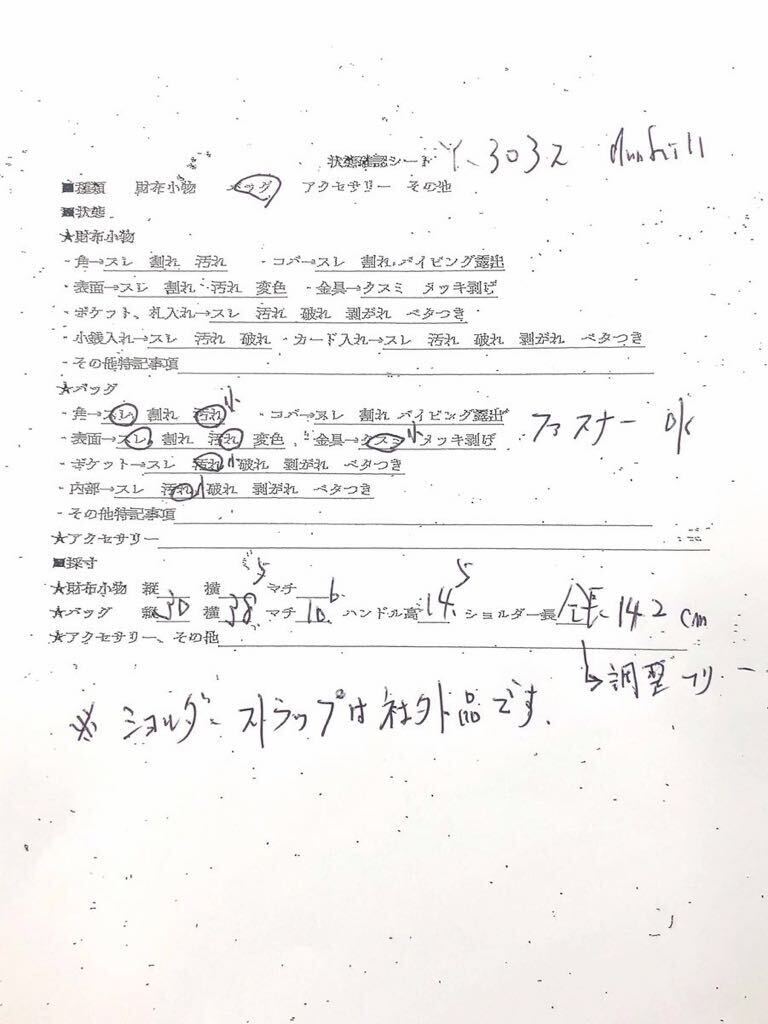 状態確認シート Y-3032 dunhill
■種類 財布小物 バッグ アクセサリー その他
■状態
★財布小物
・角→スレ 割れ 汚れ ・コバ→スレ 割れ パイピング露出
・表面→スレ 割れ 汚れ 変色 ・金具→クスミ メッキ剥げ
・ポケット、札入れ→スレ 汚れ 破れ 剥がれ ベタつき
・小銭入れ→スレ 汚れ 破れ ・カード入れ→スレ 汚れ 破れ 剥がれ ベタつき
・その他特記事項
★バッグ
・角→スレ 割れ 汚れ 小 ・コバ→スレ 割れ パイピング露出
・表面→スレ 割れ 汚れ 変色 ・金具→クスミ 小 メッキ剥げ ファスナー OK
・ポケット→スレ 汚れ 小 破れ 剥がれ ベタつき
・内部→スレ 汚れ 小 破れ 剥がれ ベタつき
・その他特記事項
★アクセサリー
■採寸
★財布小物 縦 横 マチ
★バッグ 縦 30 横 38.5 マチ 10 ハンドル高 14.5 ショルダー長 全長 142 cm
★アクセサリー、その他
↳調整フリー
※ショルダーストラップは社外品です。